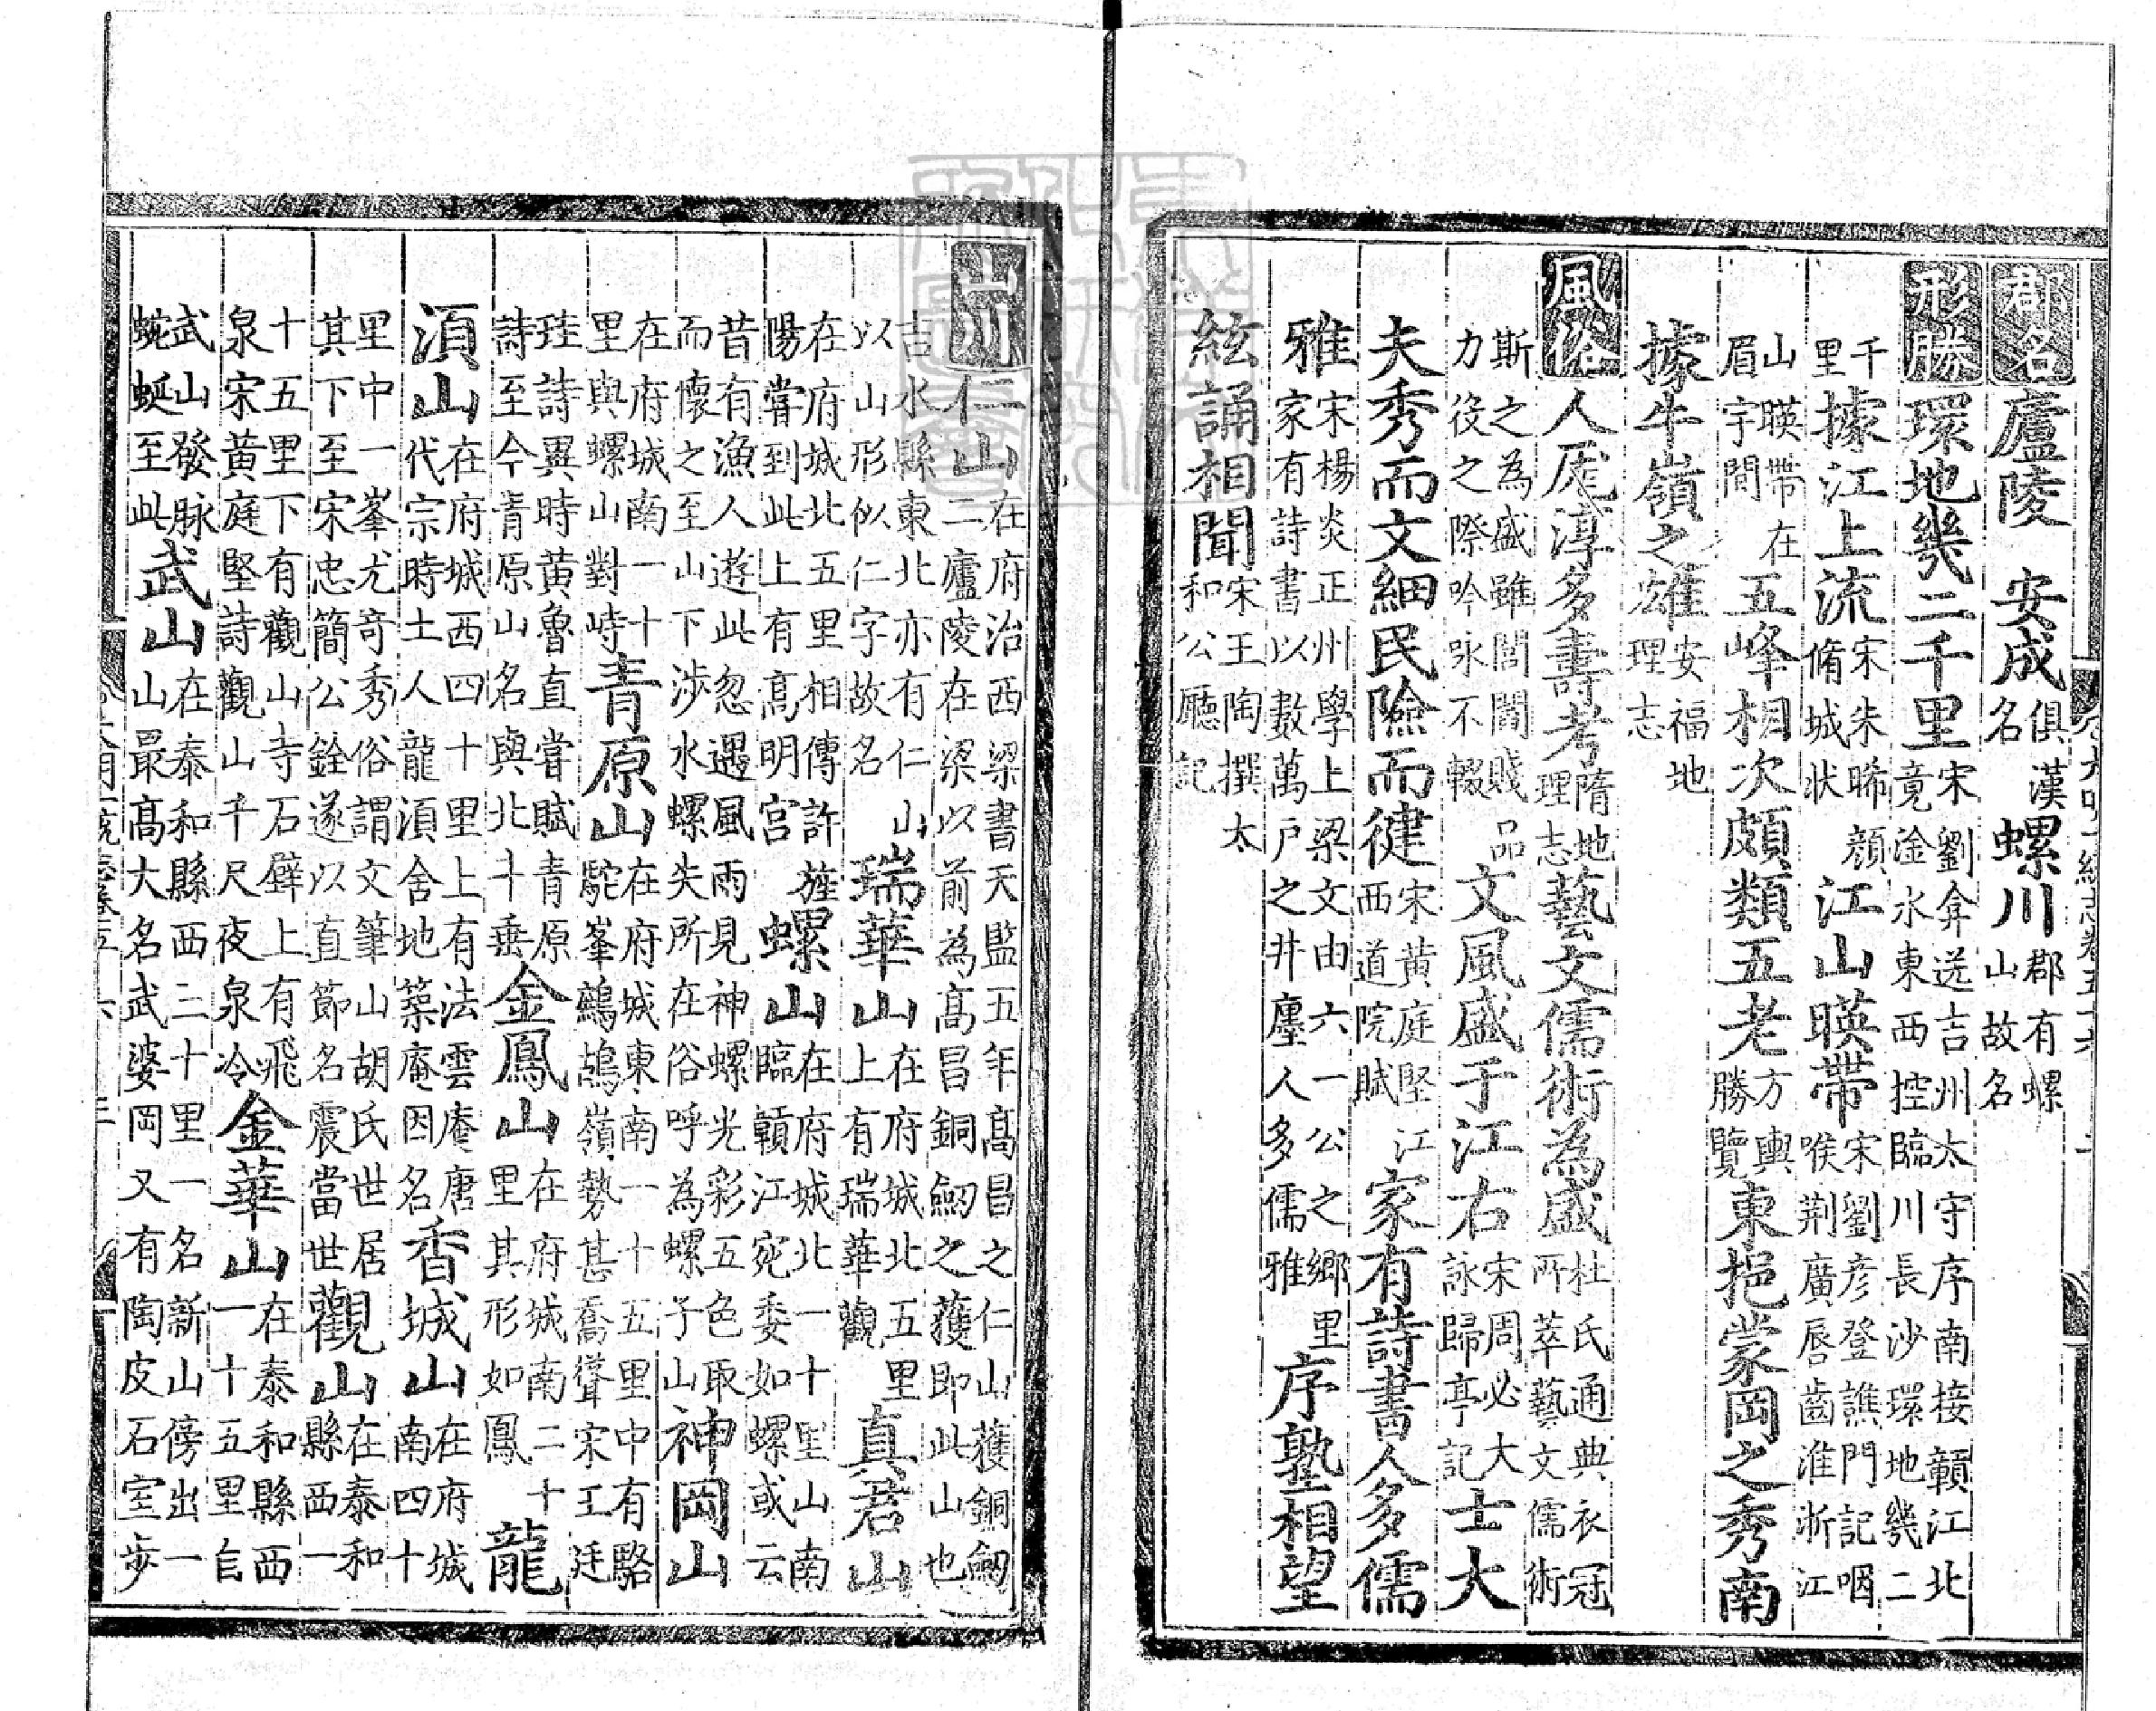 郡名廬陵 安成俱漢名螺川郡有螺山故名
形勝環地幾二千里宋劉弇送吉州太守序南接贛江北竟淦水東西控臨川長沙環地幾二
千里據江上流宋朱晞顔脩城狀江山暎帶宋劉彥登譙門記咽喉荆廣唇齒淮浙江
山暎帶在眉宇間五峰相次頗類五老方輿勝覽東挹蒙岡之秀南
據牛嶺之雄安福地理志
風俗人厖淳多壽考隋地理志藝文儒術為盛杜氏通典衣冠所萃藝文儒術
斯之為盛雖閭閻賤品力役之際吟咏不輟文風盛于江右宋周必大詠歸亭記士大
夫秀而文細民險而徤宋黃庭堅江西道院賦家有詩書人多儒
雅宋楊炎正州學上梁文由六一公之鄉里家有詩書以數萬戶之井廛人多儒雅序塾相望
絃誦相聞宋王陶撰太和公廳記
山川仁山在府治西梁書天監五年高昌之仁山獲銅劒二廬陵在梁以前為高昌銅劒之獲即此山也
吉水縣東北亦有仁山以山形似仁字故名瑞華山在府城北五里上有瑞華觀真君山
在府城北五里相傳許旌陽嘗到此上有高明宮螺山在府城北一十里山南臨贛江宛委如螺或云
昔有漁人遊此忽遇風雨見神螺光彩五色取而懷之至山下涉水螺失所在俗呼為螺子山神岡山
在府城南一十里與螺山對峙青原山在府城東南一十五里中有駱駝峯鷓鴣嶺勢甚喬聳宋王廷
珪詩異時黃魯直嘗賦青原詩至今青原山名與北斗垂金鳳山在府城南二十里其形如鳳龍
湏山在府城西四十里上有法雲庵唐代宗時土人龍湏舍地築庵因名香城山在府城南四十
里中一峯尤竒秀俗謂文筆山胡氏世居其下至宋忠簡公銓遂以直節名震當世觀山在泰和縣西一
十五里下有觀山寺石壁上有飛泉宋黃庭堅詩觀山千尺夜泉冷金華山在泰和縣西一十五里自
武山發脉蜿蜒至此武山在泰和縣西三十里一名新山傍出一山最高大名武婆岡又有陶皮石室步